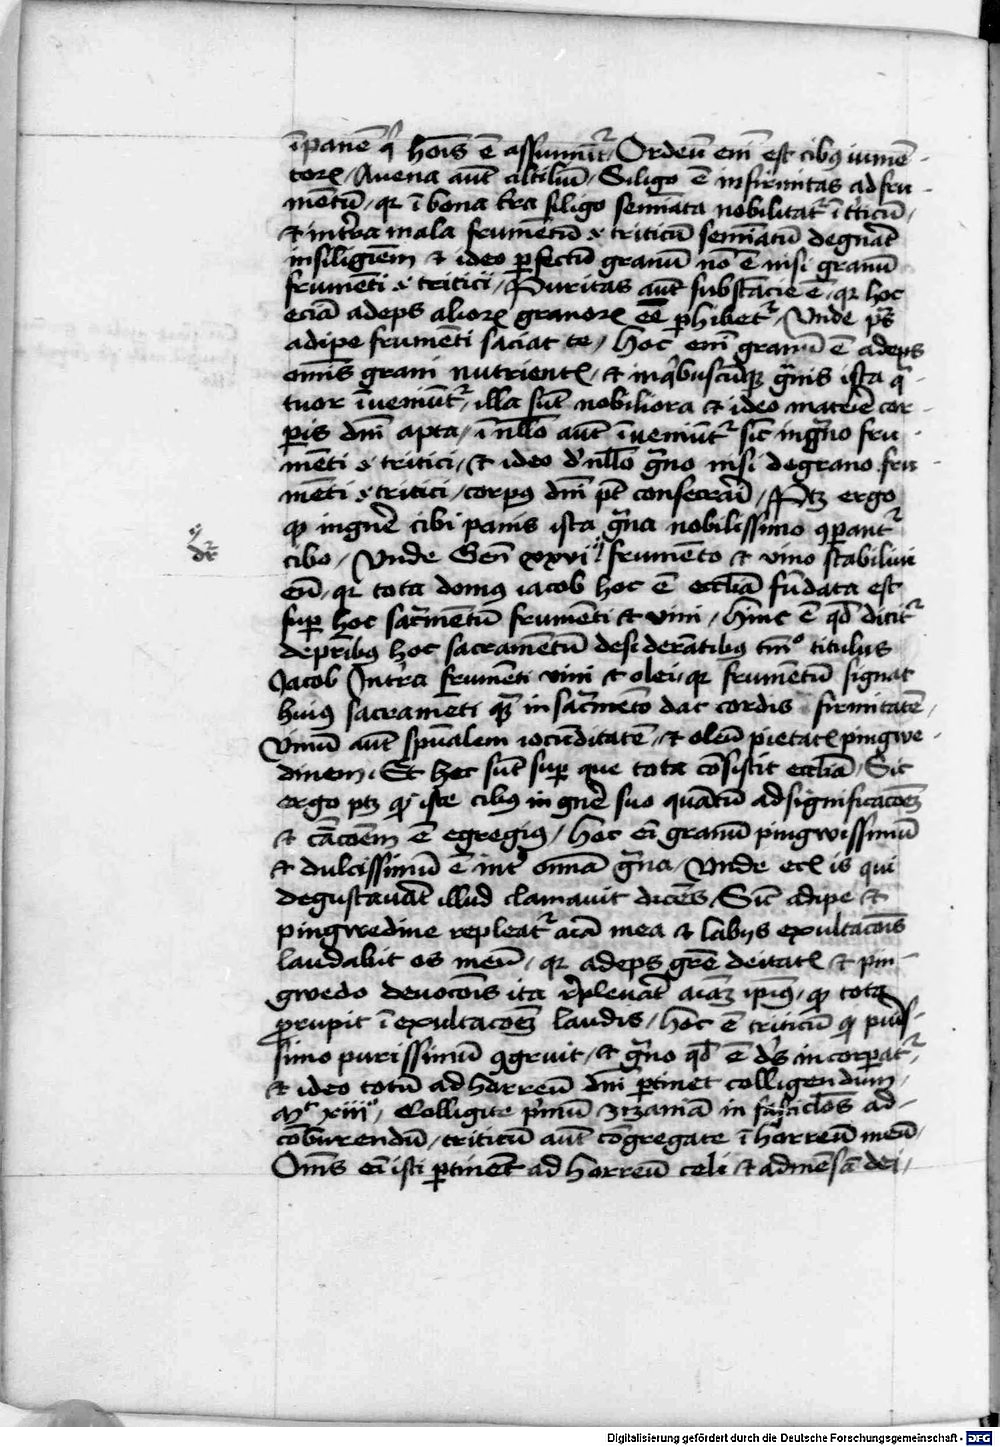 ī panē q̄ hoīs ē assumit᷑ Ordeū em̄ est cibꝯ iumē-
toꝝ / Avena aūt altiliū / Siligo ē infirmitas ad fru-
mētū / qꝛ ī bona tr̄a siligo semīata nobilitat᷑ ī t'ticū /
et in tr̄a mala frumētū ⁊ triticū semīatū degn̄at
in siligīem et ideo ꝑfectū granū nō ē nisi granū
frumēti ⁊ tritici / Puritas aūt substācie ē / qꝛ hoc
eciā adeps alioꝝ granoꝝ eē ꝑhibet᷑ / Vnde pˢ
adipe frumēti saciat te / hoc em̄ granū ē adeps
om̄is grani nutrientꝭ / et in qͥbuscūqꝫ gͣnis ista qͣ-
tuor īveniūt᷑ / illa sūt nobiliora et ideo materie cor-
ꝑis dn̄i apta / ī nll̄o aūt īveniūt᷑ sic̄ in gͣno fru-
mēti ⁊ tritici / et ideo d' nll̄o gͣno nisi de grano fru-
mēti ⁊ tritici / corpꝯ dn̄i pt̄ consecrari / Ptꝫ ergo
ꝙ in gn̄e cibi panis ista gͣna nobilissimo ꝯparant᷑
cibo / Vnde Gen̄ xxvii frumēto et vino stabilivi
eū / qꝛ tota domꝯ iacob hoc ē eccl̄ia fūdata est
suꝑ hoc sacͣmētū frumēti et vini / hinc ē qd̄ dicit᷑
de pr̄ibꝯ hoc sacramētū desiderātibꝯ titulus
Jacob In tr̄a frumēti vini et olei / qꝛ frumētū signat
huiꝯ sacramēti in sacͣmēto dat cordis firmitatē /
Vinū aūt sp̄ualem iocūditatē / et oleū pietatꝭ pingwe-
dinem / Et hec sūt suꝑ que tota cōsistit eccl̄ia / Sic
ergo ptꝫ ꝙ iste cibꝯ in gn̄e suo quātū ad significacōeꝫ
et ē egregiꝯ / hoc ei granū pingwissimū
et dulcissimū ē int' om̄ia gͣna / Vnde ecꝭ is qui
degustavat illud clamavit dicēs / Sic̄ adipe et
pingwedine repleat᷑ aīa mea et labijs exultacōis
laudabit os meū / qꝛ adeps gr̄e deitatꝭ et pin-
gwedo devocōis ita r̄plevāt aiaꝫ ip̄iꝯ / ꝙ tota
prorupit ī exultacōeꝫ laudis / hoc ē triticū qd
simo purissimū ꝯgruit / et gͣno qd̄ ē dˢ incorporat᷑
et ideo totū ad horreū dn̄i ꝑtinet colligendum /
Mͭ xiii° / Colligite pͥmū zizaniā in fasciclōs ad-
cōburendū / triticū aūt cōgregate ī horreū meū /
Om̄s ei isti ꝑtinent ad horreū celi et ad mēsā dei /